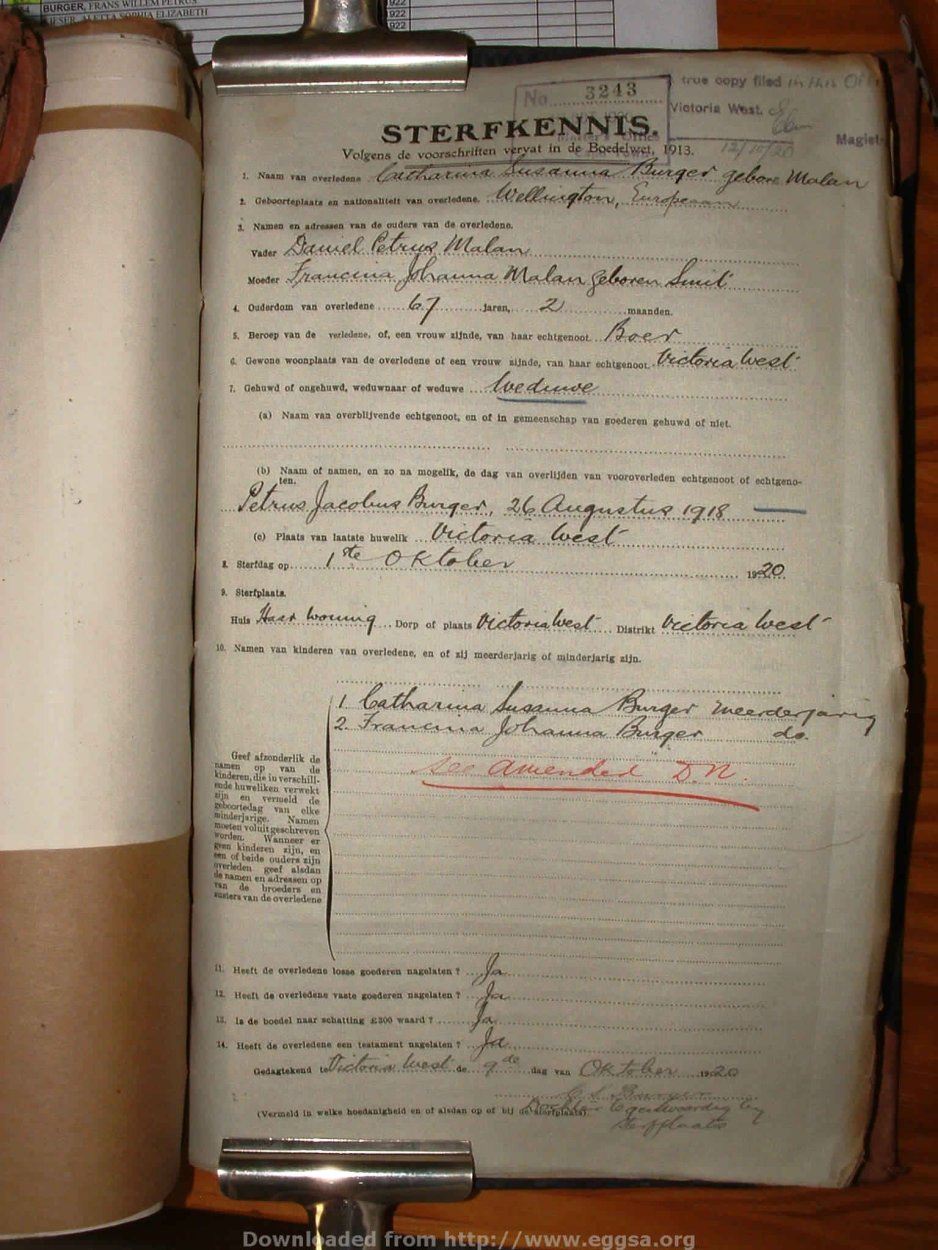 BURGER, FRANS WILLEM PETRUS
ALETTA SOPHIA ELIZABETH
1922
1922
No. 3243
true copy filed in this Office
Victoria West.
12/10/20
Magist
STERFKENNIS.
Volgens de voorschriften vervat in de Boedelwet, 1913.
1. Naam van overledene Catharina Susanna Burger gebore Malan
2. Geboorteplaats en nationaliteit van overledene. Wellington, Europeaan
3. Namen en adressen van de ouders van de overledene.
Vader Daniel Petrus Malan
Moeder Francina Johanna Malan geboren Smit
4. Ouderdom van overledene 67 jaren, 2 maanden.
5. Beroep van de verledene, of, een vrouw zijnde, van haar echtgenoot Boer
6. Gewone woonplaats van de overledene of een vrouw zijnde, van haar echtgenoot. Victoria West
7. Gehuwd of ongehuwd, weduwnaar of weduwe Weduwe
(a) Naam van overblijvende echtgenoot, en of in gemeenschap van goederen gehuwd of niet.
(b) Naam of namen, en zo na mogelik, de dag van overlijden van vooroverleden echtgenoot of echtgeno-
ten.
Petrus Jacobus Burger, 26 Augustus 1918
(c) Plaats van laatste huwelik Victoria West
8. Sterfdag op 1ste Oktober 1920
9. Sterfplaats.
Huis Haar woning Dorp of plaats Victoria West Distrikt Victoria West
10. Namen van kinderen van overledene, en of zij meerderjarig of minderjarig zijn.
1 Catharina Susanna Burger meerderjarig
2. Francina Johanna Burger do.
see amended D.N.
Geef afzonderlik de
namen op van de
kinderen, die in verschill-
ende huweliken verwekt
zijn en vermeld de
geboortedag van elke
minderjarige. Namen
moeten voluit geschreven
worden. Wanneer er
geen kinderen zijn, en
een of beide ouders zijn
overleden geef alsdan
de namen en adressen op
van de broeders en
zusters van de overledene
11. Heeft de overledene losse goederen nagelaten? Ja
12. Heeft de overledene vaste goederen nagelaten? Ja
13. Is de boedel naar schatting £300 waard? Ja
14. Heeft de overledene een testament nagelaten? Ja
Gedagtekend te Victoria West de 9de dag van Oktober 1920
C. S. Burger
(Vermeld in welke hoedanigheid en of alsdan op of bij de sterfplaats). Dochter tegenwoordig bij
sterfplaats
Downloaded from http://www.eggsa.org